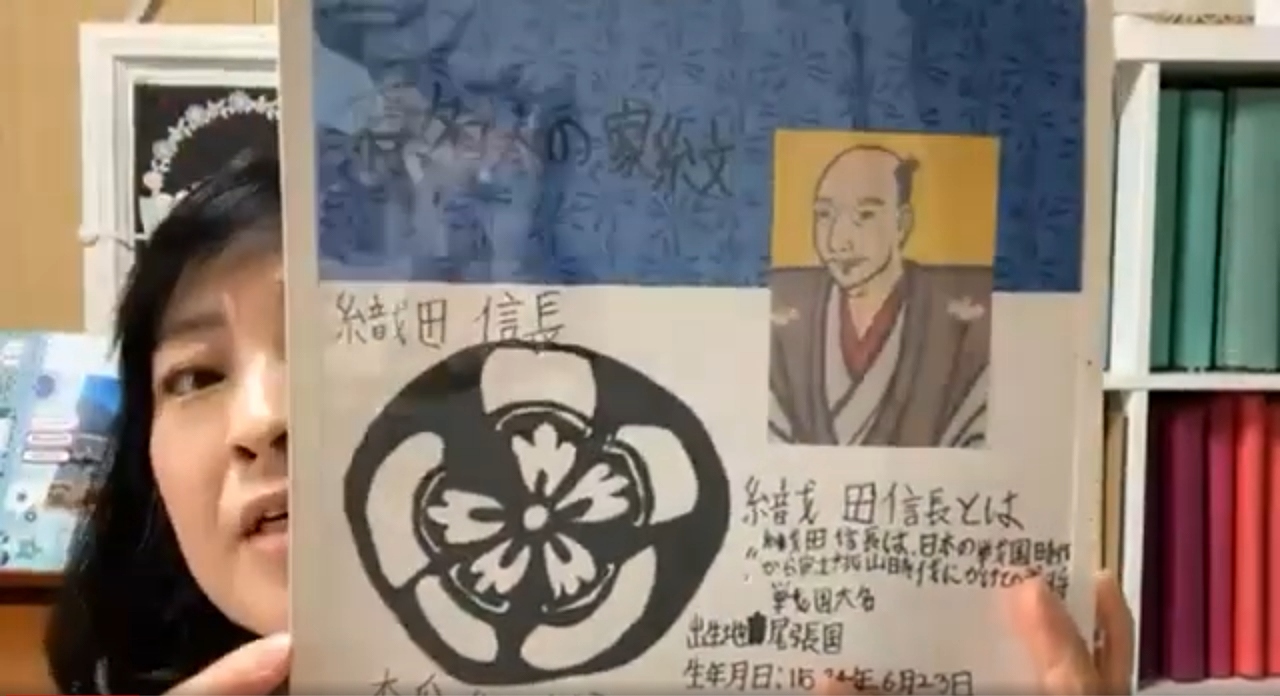 長名人の家紋
織田 信長
織田信長とは
織田信長は、日本の戦国時代
から安土桃山時代にかけての武将
戦国大名
出生地 尾張国
生年月日:1534年6月23日